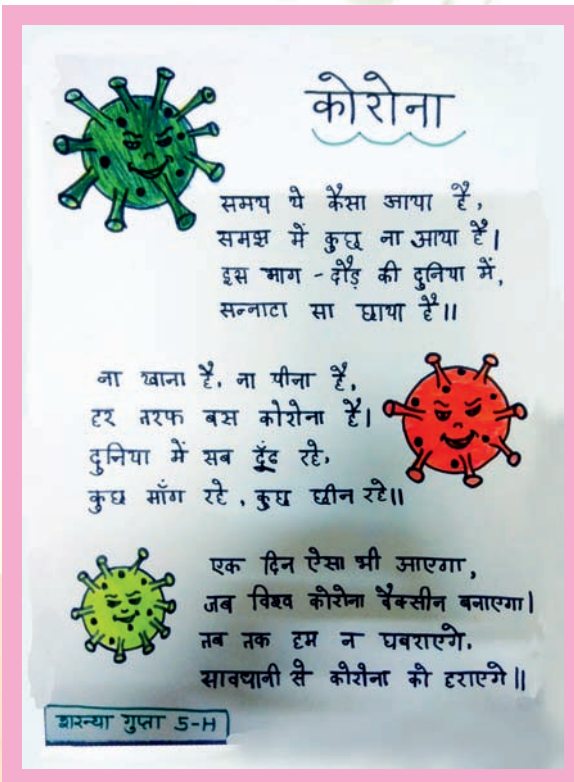 कोरोना
समय ये कैसा आया है,
समझ में कुछ ना आया है।
इस भाग - दौड़ की दुनिया में,
सन्नाटा सा छाया है॥
ना खाना है, ना पीना है,
हर तरफ बस कोरोना है।
दुनिया में सब ढूँढ रहे,
कुछ माँग रहे, कुछ छीन रहे॥
एक दिन ऐसा भी आएगा,
जब विश्व कोरोना वैक्सीन बनाएगा।
तब तक हम न घबराएगे,
सावधानी से कोरोना को हराएगे॥
शरन्या गुप्ता 5-H